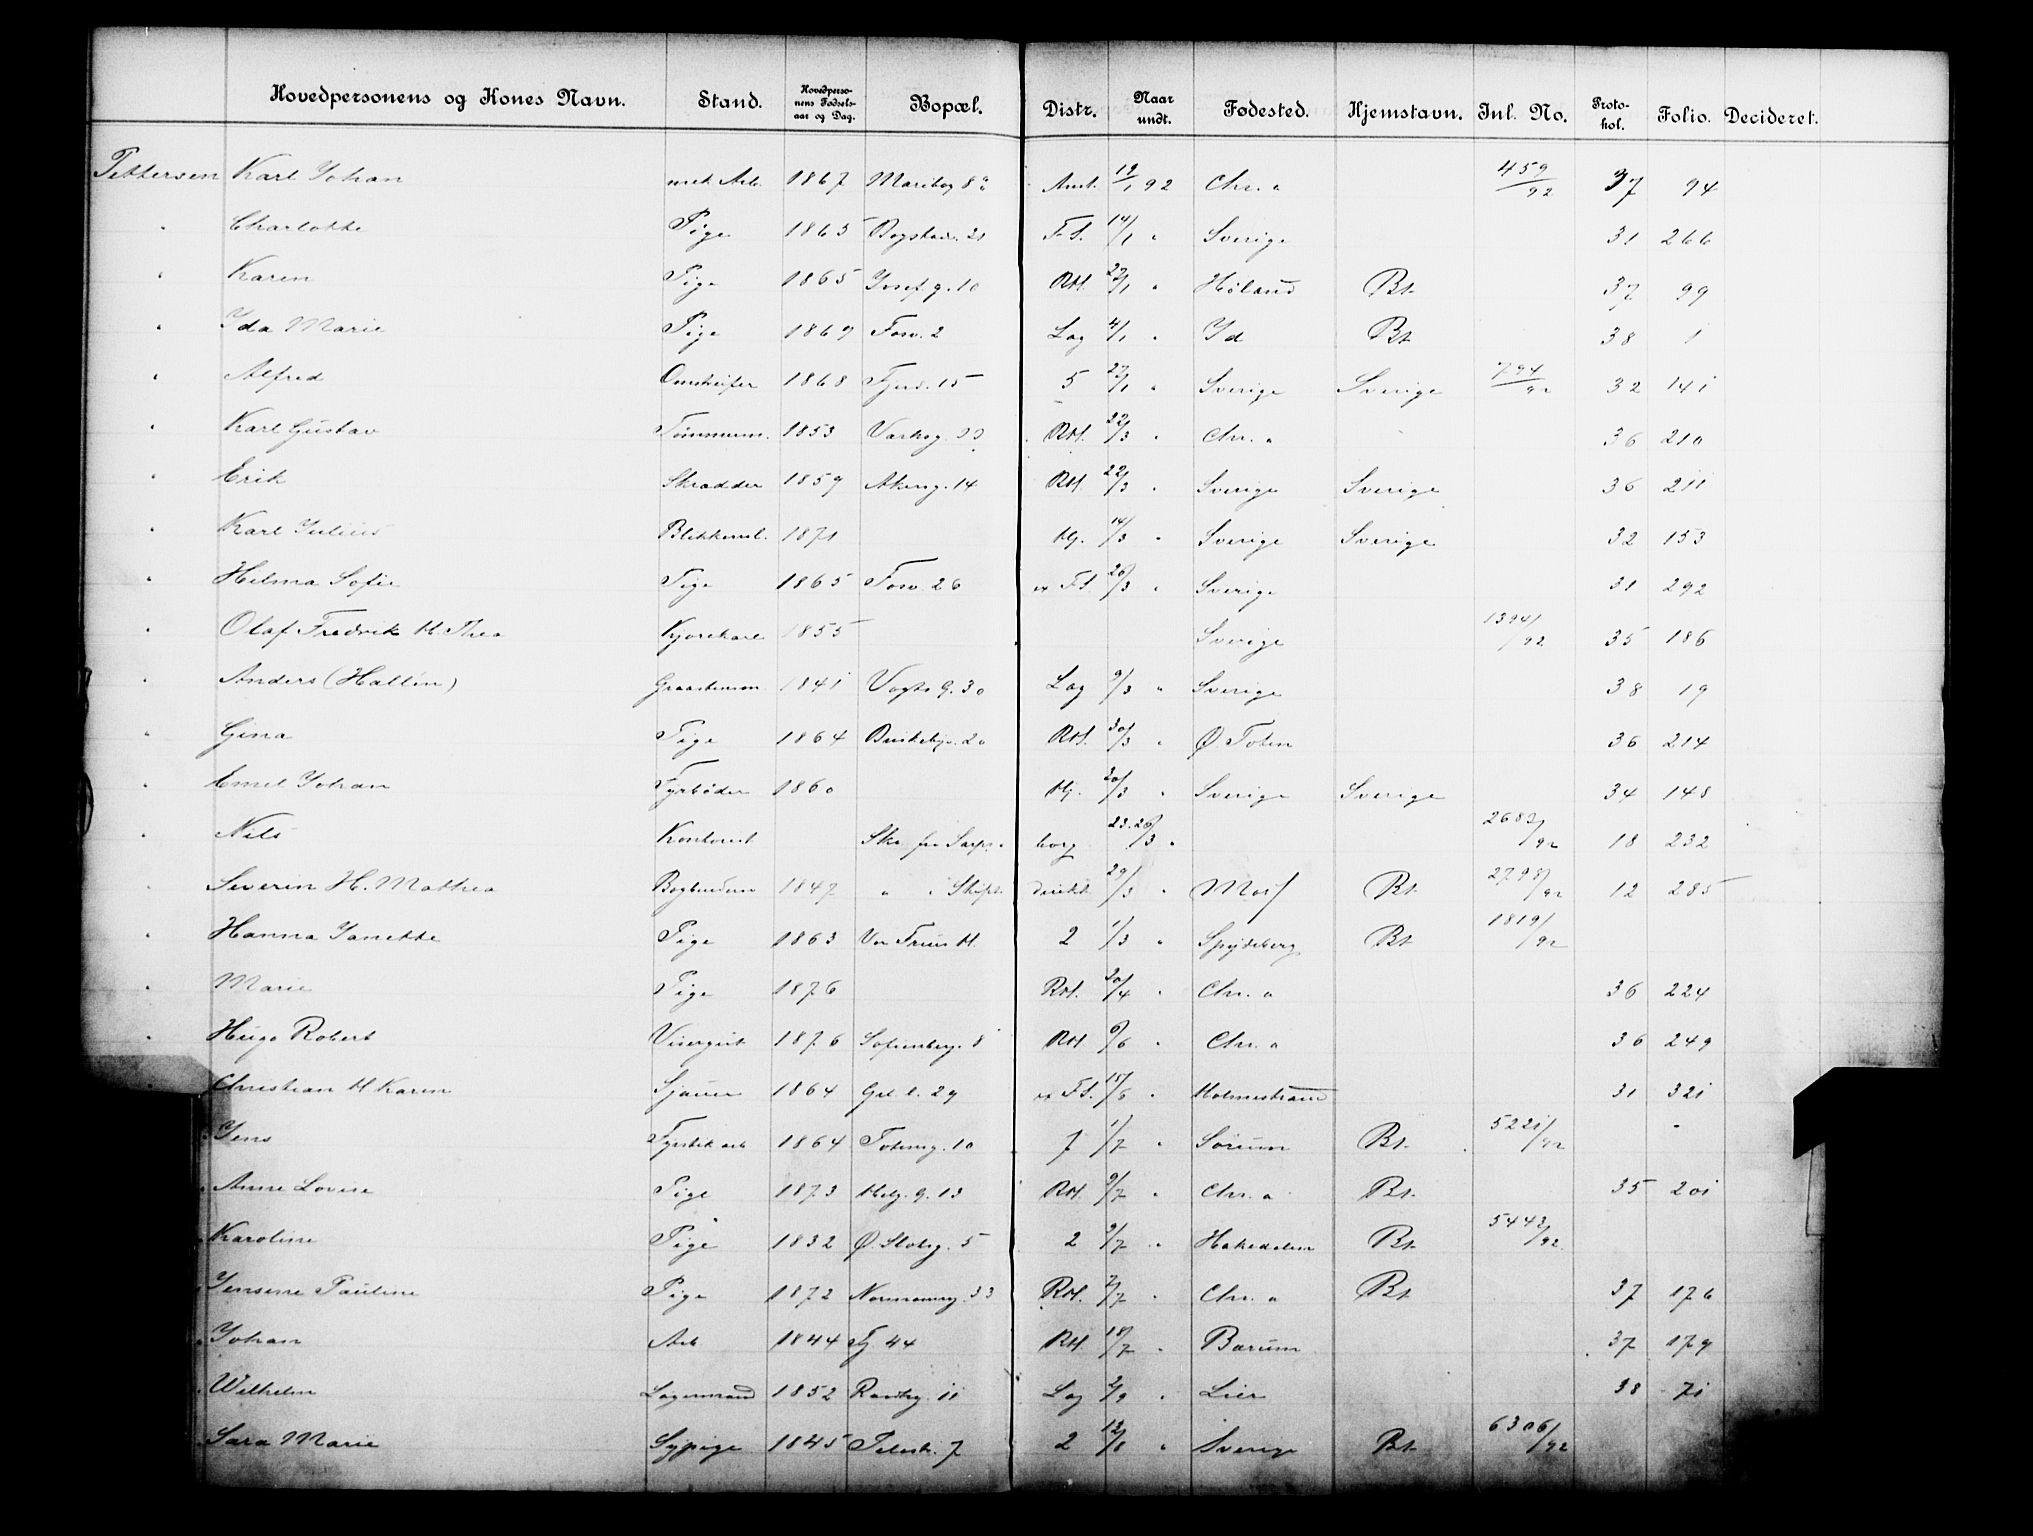 Hovedpersonens og Kones Navn. Stand. Hovedperso-nens Fødsels-aar og Dag. Bopæl. Distr. Naar undt. Fødested. Hjemstavn. Jnl. No. Proto-kol. Folio. Decideret.
Pettersen Karl Johan mek Arb. 1867 Maribog 8 Amt. 19/1 92 Chr. a 459/92 37 94
" Charlotte Pige 1865 Bogstadv. 21 F.S. 14/1 " Sverige 31 266
" Karen Pige 1865 Josef g. 10 RM. 22/1 " Høland Bt. 37 99
" Ida Marie Pige 1869 Fosv. 2 Lag 4/1 " Id Bt. 38 1
" Alfred Omstreifer 1868 Fjerd. 15 5 27/1 " Sverige Sverige 794/92 32 141
" Karl Gustav Tømmerm. 1853 Varksg. 33 RM. 22/3 " Chr. a 36 210
" Erik Skrædder 1859 Akersg. 14 RM. 22/3 " Sverige Sverige 36 211
" Karl Julius Blikkensl. 1871 Hj. 14/3 " Sverige Sverige 32 153
" Hilma Sofie Pige 1865 Fosv. 26 F.S. 26/3 " Sverige 31 292
" Olaf Fredrik H. Thea Kjørekarl 1855 Sverige 1394/92 35 186
" Anders (Hallén) Graastensm. 1841 Vogts g. 30 Lag 9/3 " Sverige 38 19
" Gina Pige 1864 Briskebyv. 20 RM. 30/3 " Ø Toten 36 214
" Emil Johan Fyrbøder 1860 Hj. 20/3 " Sverige Sverige 34 148
" Nils Kontorist Ska fra Sarps- borg 23.26/3 " 2683/92 18 232
" Severin H. Mathea Bogbinder 1847 " " Skifte- direkt 29/3 " Moss Bt 2798/92 12 285
" Hanna Janette Pige 1863 Vor Frues H. 2 1/3 " Spydeberg Bt 1819/92
" Marie Pige 1876 RM. 20/4 " Chr. a 36 224
" Hugo Robert Visergut 1876 Sofienberg. 8 RM 6/6 " Chr. a 36 249
" Christian H Karen Sjauer 1864 Grl. l. 29 F.S. 15/6 " Holmestrand 31 321
" Jens Fyrstik arb 1864 Totensg. 10 7 1/7 " Sørum Bt. 5221/92 -
" Anne Lovise Pige 1873 Helg. g. 13 RM. 9/7 " Chr. a Bt. 35 201
" Karoline Pige 1832 Ø. Slotsg. 5 2 3/7 " Hakedalen Bt. 5443/92
" Jensine Pauline Pige 1872 Normannsg. 33 RM. 7/7 " Chr. a Bt. 37 176
" Johan Arb. 1844 Fj 44 RM 18/7 " Bærum 37 179
" Wilhelm Logemand 1852 Randsg. 11 Lag 2/9 " Lier 38 71
" Sara Marie Sypige 1845 Pilestr. 7 2 12/8 " Sverige Bt 6306/92